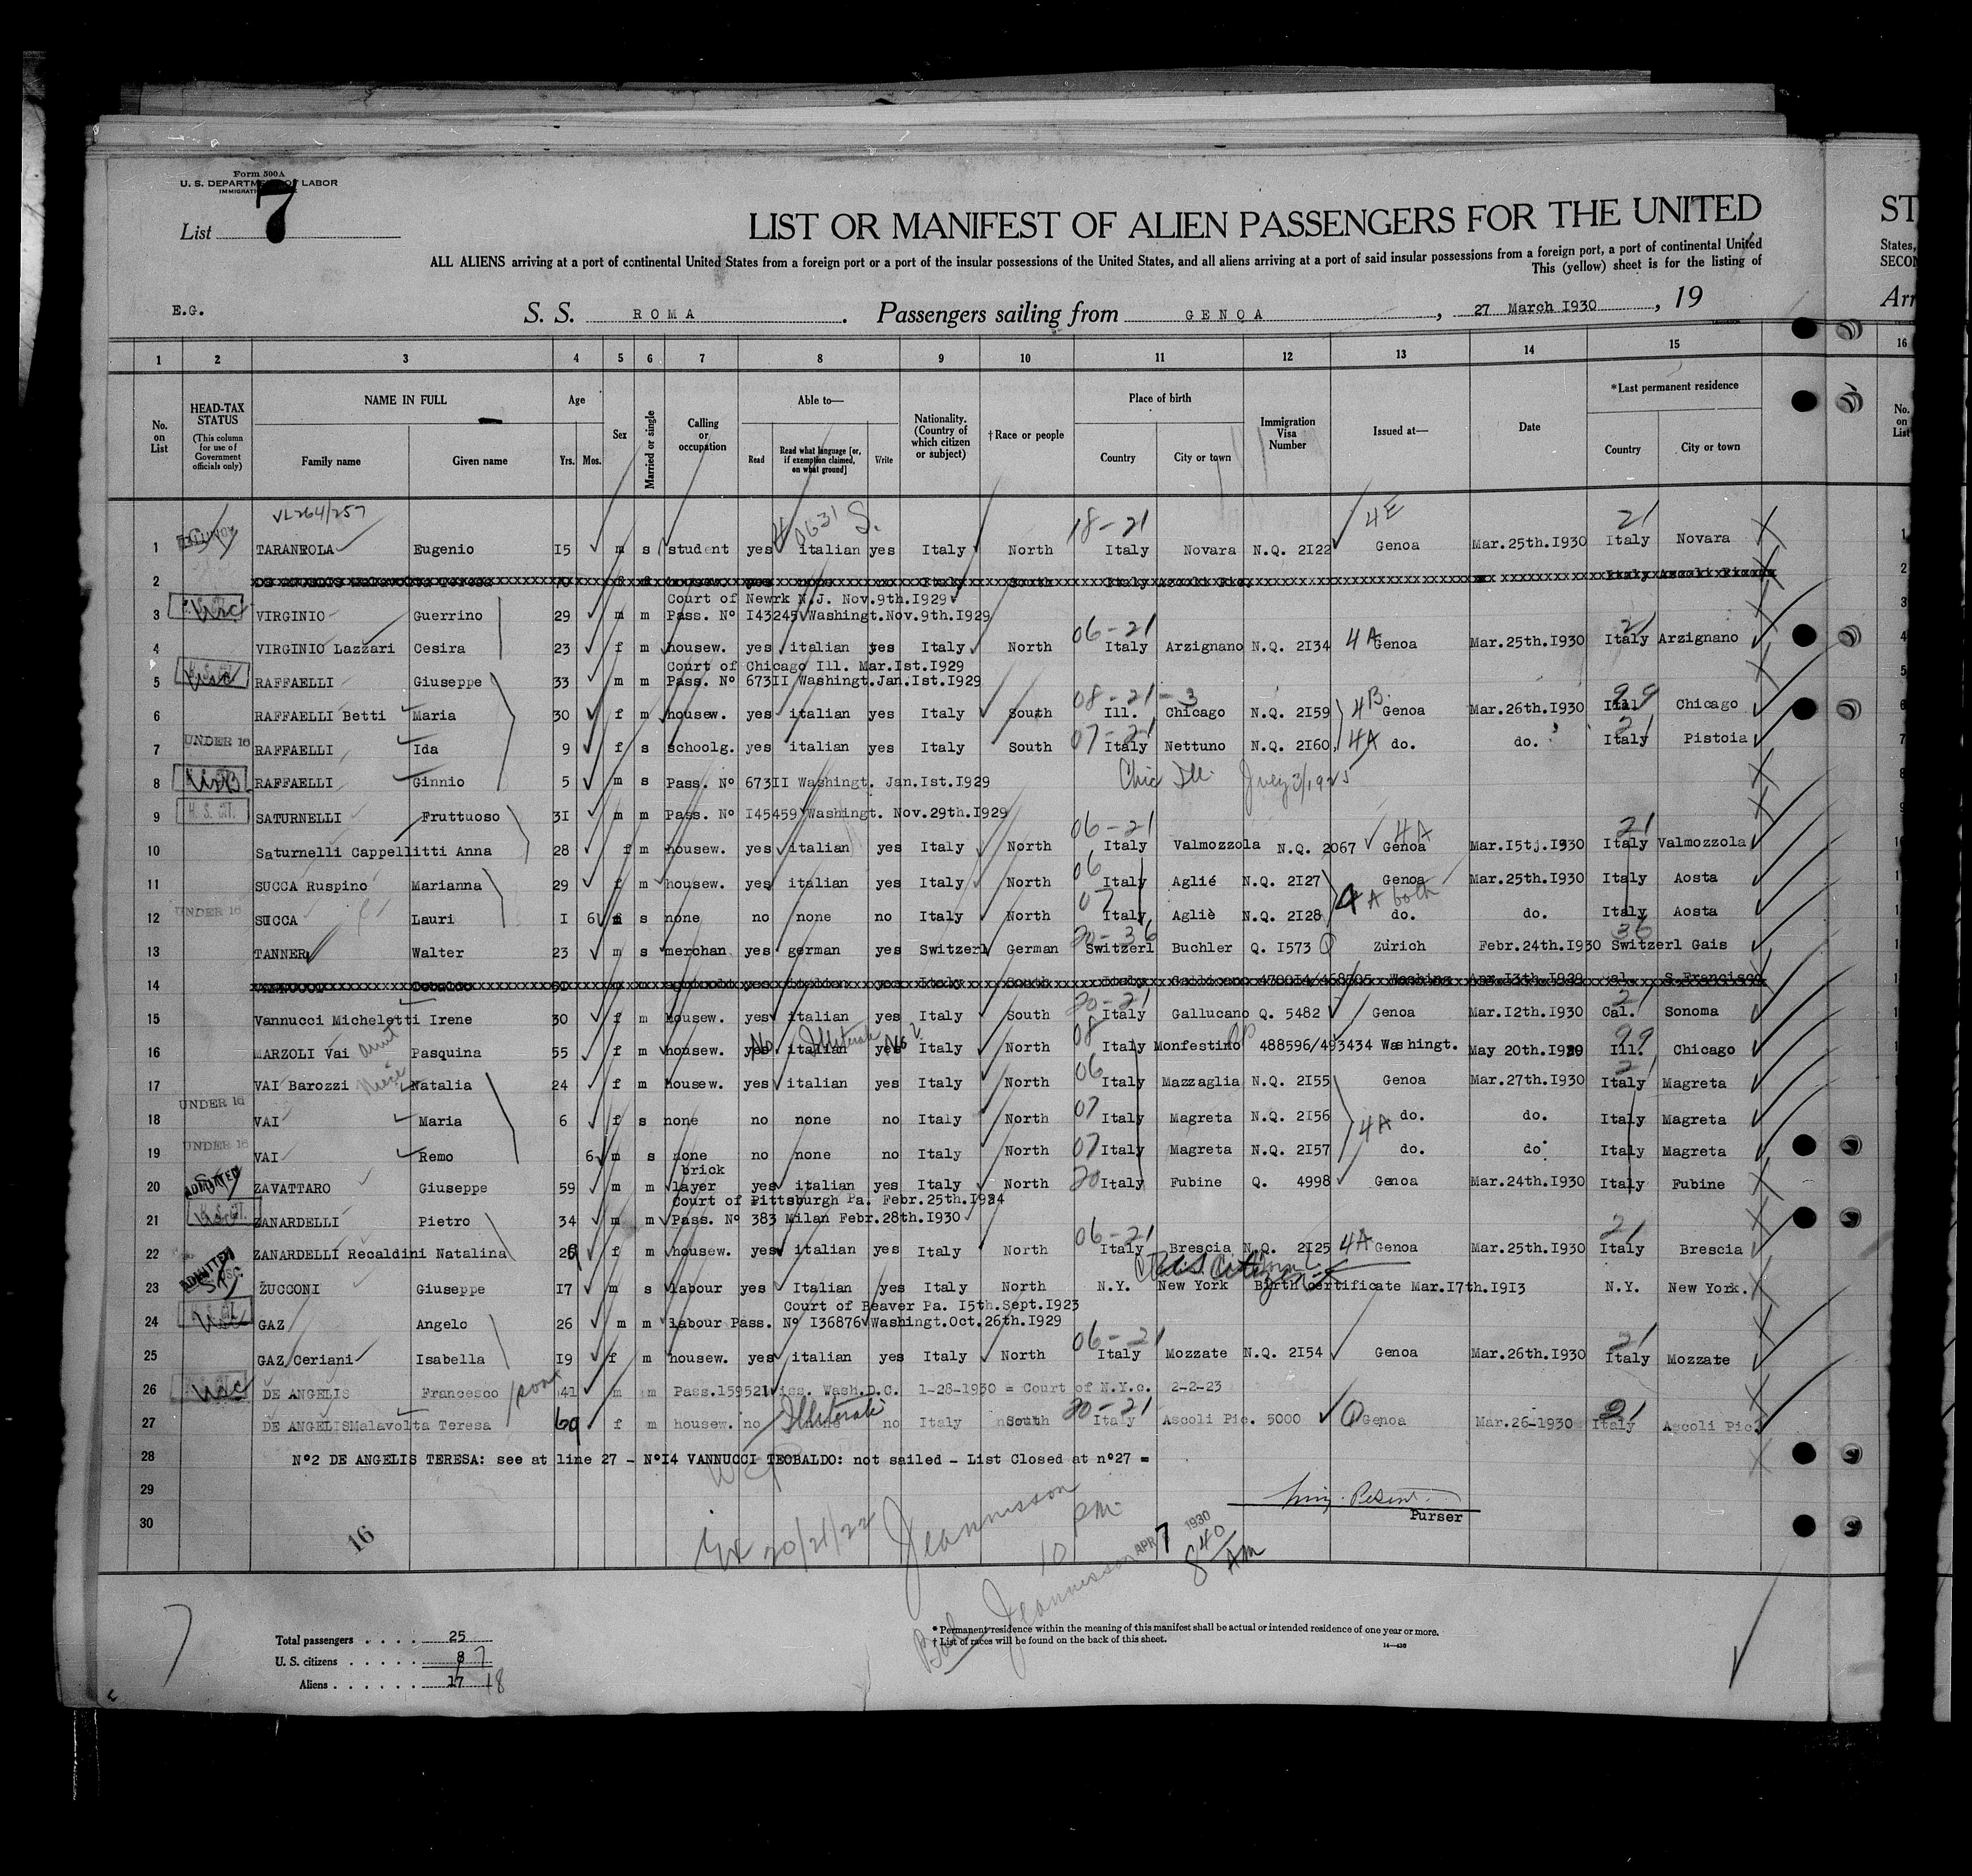 Form 500A
U. S. DEPARTMENT OF LABOR
List 7
LIST OR MANIFEST OF ALIEN PASSENGERS FOR THE UNITED
ST
ALL ALIENS arriving at a port of continental United States from a foreign port or a port of the insular possessions of the United States, and all aliens arriving at a port of said insular possessions from a foreign port, a port of continental United
States,
This (yellow) sheet is for the listing of
SECON
E.G. S. S. ROMA. Passengers sailing from GENOA, 27 March I930, 19
Arr
1 2 3 4 5 6 7 8 9 10 11 12 13 14 15 16
No. on List
HEAD-TAX STATUS (This column for use of Government officials only)
NAME IN FULL Family name Given name
Age Yrs. Mos.
Sex
Married or single
Calling or occupation
Able to— Read Read what language [or, if exemption claimed, on what ground] Write
Nationality. (Country of which citizen or subject)
† Race or people
Place of birth Country City or town
Immigration Visa Number
Issued at—
Date
*Last permanent residence Country City or town
No. on List
VL264/257 0631 S. 18-21 4E 21
1 TARANEOLA Eugenio I5 m s student yes italian yes Italy North Italy Novara N.Q. 2I22 Genoa Mar.25th.I930 Italy Novara
2
Court of Newrk N.J. Nov.9th.I929
3 USC VIRGINIO Guerrino 29 m m Pass. Nº I43245 Washingt.Nov.9th.I929
06-21 21
4 VIRGINIO Lazzari Cesira 23 f m housew. yes italian yes Italy North Italy Arzignano N.Q. 2I34 4A Genoa Mar.25th.I930 Italy Arzignano
Court of Chicago Ill. Mar.Ist.I929
5 RAFFAELLI Giuseppe 33 m m Pass. Nº 673II Washingt.Jan.Ist.I929
08-21-3 99
6 RAFFAELLI Betti Maria 30 f m housew. yes italian yes Italy South Ill. Chicago N.Q. 2I59 4B Genoa Mar.26th.I930 Ill. Chicago
UNDER 16 07-21 21
7 RAFFAELLI Ida 9 f s schoolg. yes italian yes Italy South Italy Nettuno N.Q. 2I60 4A do. do. Italy Pistoia
8 RAFFAELLI Ginnio 5 m s Pass. Nº 673II Washingt. Jan.Ist.I929 Chic Ill. July 3/1925
9 SATURNELLI Fruttuoso 3I m m Pass. Nº I45459 Washingt. Nov.29th.I929
06-21 4A 21
10 Saturnelli Cappellitti Anna 28 f m housew. yes italian yes Italy North Italy Valmozzola N.Q. 2067 Genoa Mar.I5tj.I930 Italy Valmozzola
06
11 SUCCA Ruspino Marianna 29 f m housew. yes italian yes Italy North Italy Aglié N.Q. 2I27 Genoa Mar.25th.I930 Italy Aosta
UNDER 16 07 4A both
12 SUCCA Lauri I 6 s none no none no Italy North Italy Agliè N.Q. 2I28 do. do. Italy Aosta
20-36 36
13 TANNER Walter 23 m s merchan yes german yes Switzerl German Switzerl Buchler Q. I573 Q Zurich Febr.24th.I930 Switzerl Gais
14
20-21 21
15 Vannucci Micheletti Irene 30 f m housew. yes italian yes Italy South Italy Gallucano Q. 5482 Genoa Mar.I2th.I930 Cal. Sonoma
aunt No Illiterate No 08 99
16 MARZOLI Vai Pasquina 55 f m housew. yes italian yes Italy North Italy Monfestino 488596/493434 Washingt. May 20th.I929 Ill. Chicago
Niece 06 21
17 VAI Barozzi Natalia 24 f m housew. yes italian yes Italy North Italy Mazzaglia N.Q. 2I55 Genoa Mar.27th.I930 Italy Magreta
UNDER 16 07
18 VAI Maria 6 f s none no none no Italy North Italy Magreta N.Q. 2I56 4A do. do. Italy Magreta
UNDER 16
19 VAI Remo 6 m s none no none no Italy North 07 Italy Magreta N.Q. 2I57 do. do Italy Magreta
brick
20 ADMITTED ZAVATTARO Giuseppe 59 m m layer yes italian yes Italy North 20 Italy Fubine Q. 4998 Genoa Mar.24th.I930 Italy Fubine
Court of Pittsburgh Pa. Febr.25th.I924
21 ZANARDELLI Pietro 34 m m Pass. Nº 383 Milan Febr.28th.I930
06-21 21
22 ZANARDELLI Recaldini Natalina 26 f m housew. yes italian yes Italy North Italy Brescia N.Q. 2I25 4A Genoa Mar.25th.I930 Italy Brescia
23 ADMITTED ŽUCCONI Giuseppe I7 m s labour yes Italian yes Italy North N.Y. New York Birth certificate Mar.I7th.I9I3 N.Y. New York.
Court of Beaver Pa. I5th.Sept.I923
24 GAZ Angelo 26 m m labour Pass. Nº I36876 Washingt.Oct.26th.I929
06-21 21
25 GAZ Ceriani Isabella I9 f m housew. yes italian yes Italy North Italy Mozzate N.Q. 2I54 Genoa Mar.26th.I930 Italy Mozzate
26 USC DE ANGELIS Francesco 41 m m Pass.159521 iss. Wash.D.C. 1-28-1930 = Court of N.Y.c. 2-2-23
Illiterate 20-21 21
27 DE ANGELISMalavolta Teresa 69 f m housew. no none no Italy South Italy Ascoli Pic. 5000 Q Genoa Mar.26-1930 Italy Ascoli Pic.
28 Nº2 DE ANGELIS TERESA: see at line 27 - NºI4 VANNUCCI TEOBALDO: not sailed - List Closed at nº27 =
29
30 Purser
16 20/21/22 Jeannisson PM
10 Jeannisson APR 7 1930 8 40 AM
Total passengers . . . . 25
U. S. citizens . . . . . 8 7
Aliens . . . . . . 17 18
* Permanent residence within the meaning of this manifest shall be actual or intended residence of one year or more.
† List of races will be found on the back of this sheet.
14—436